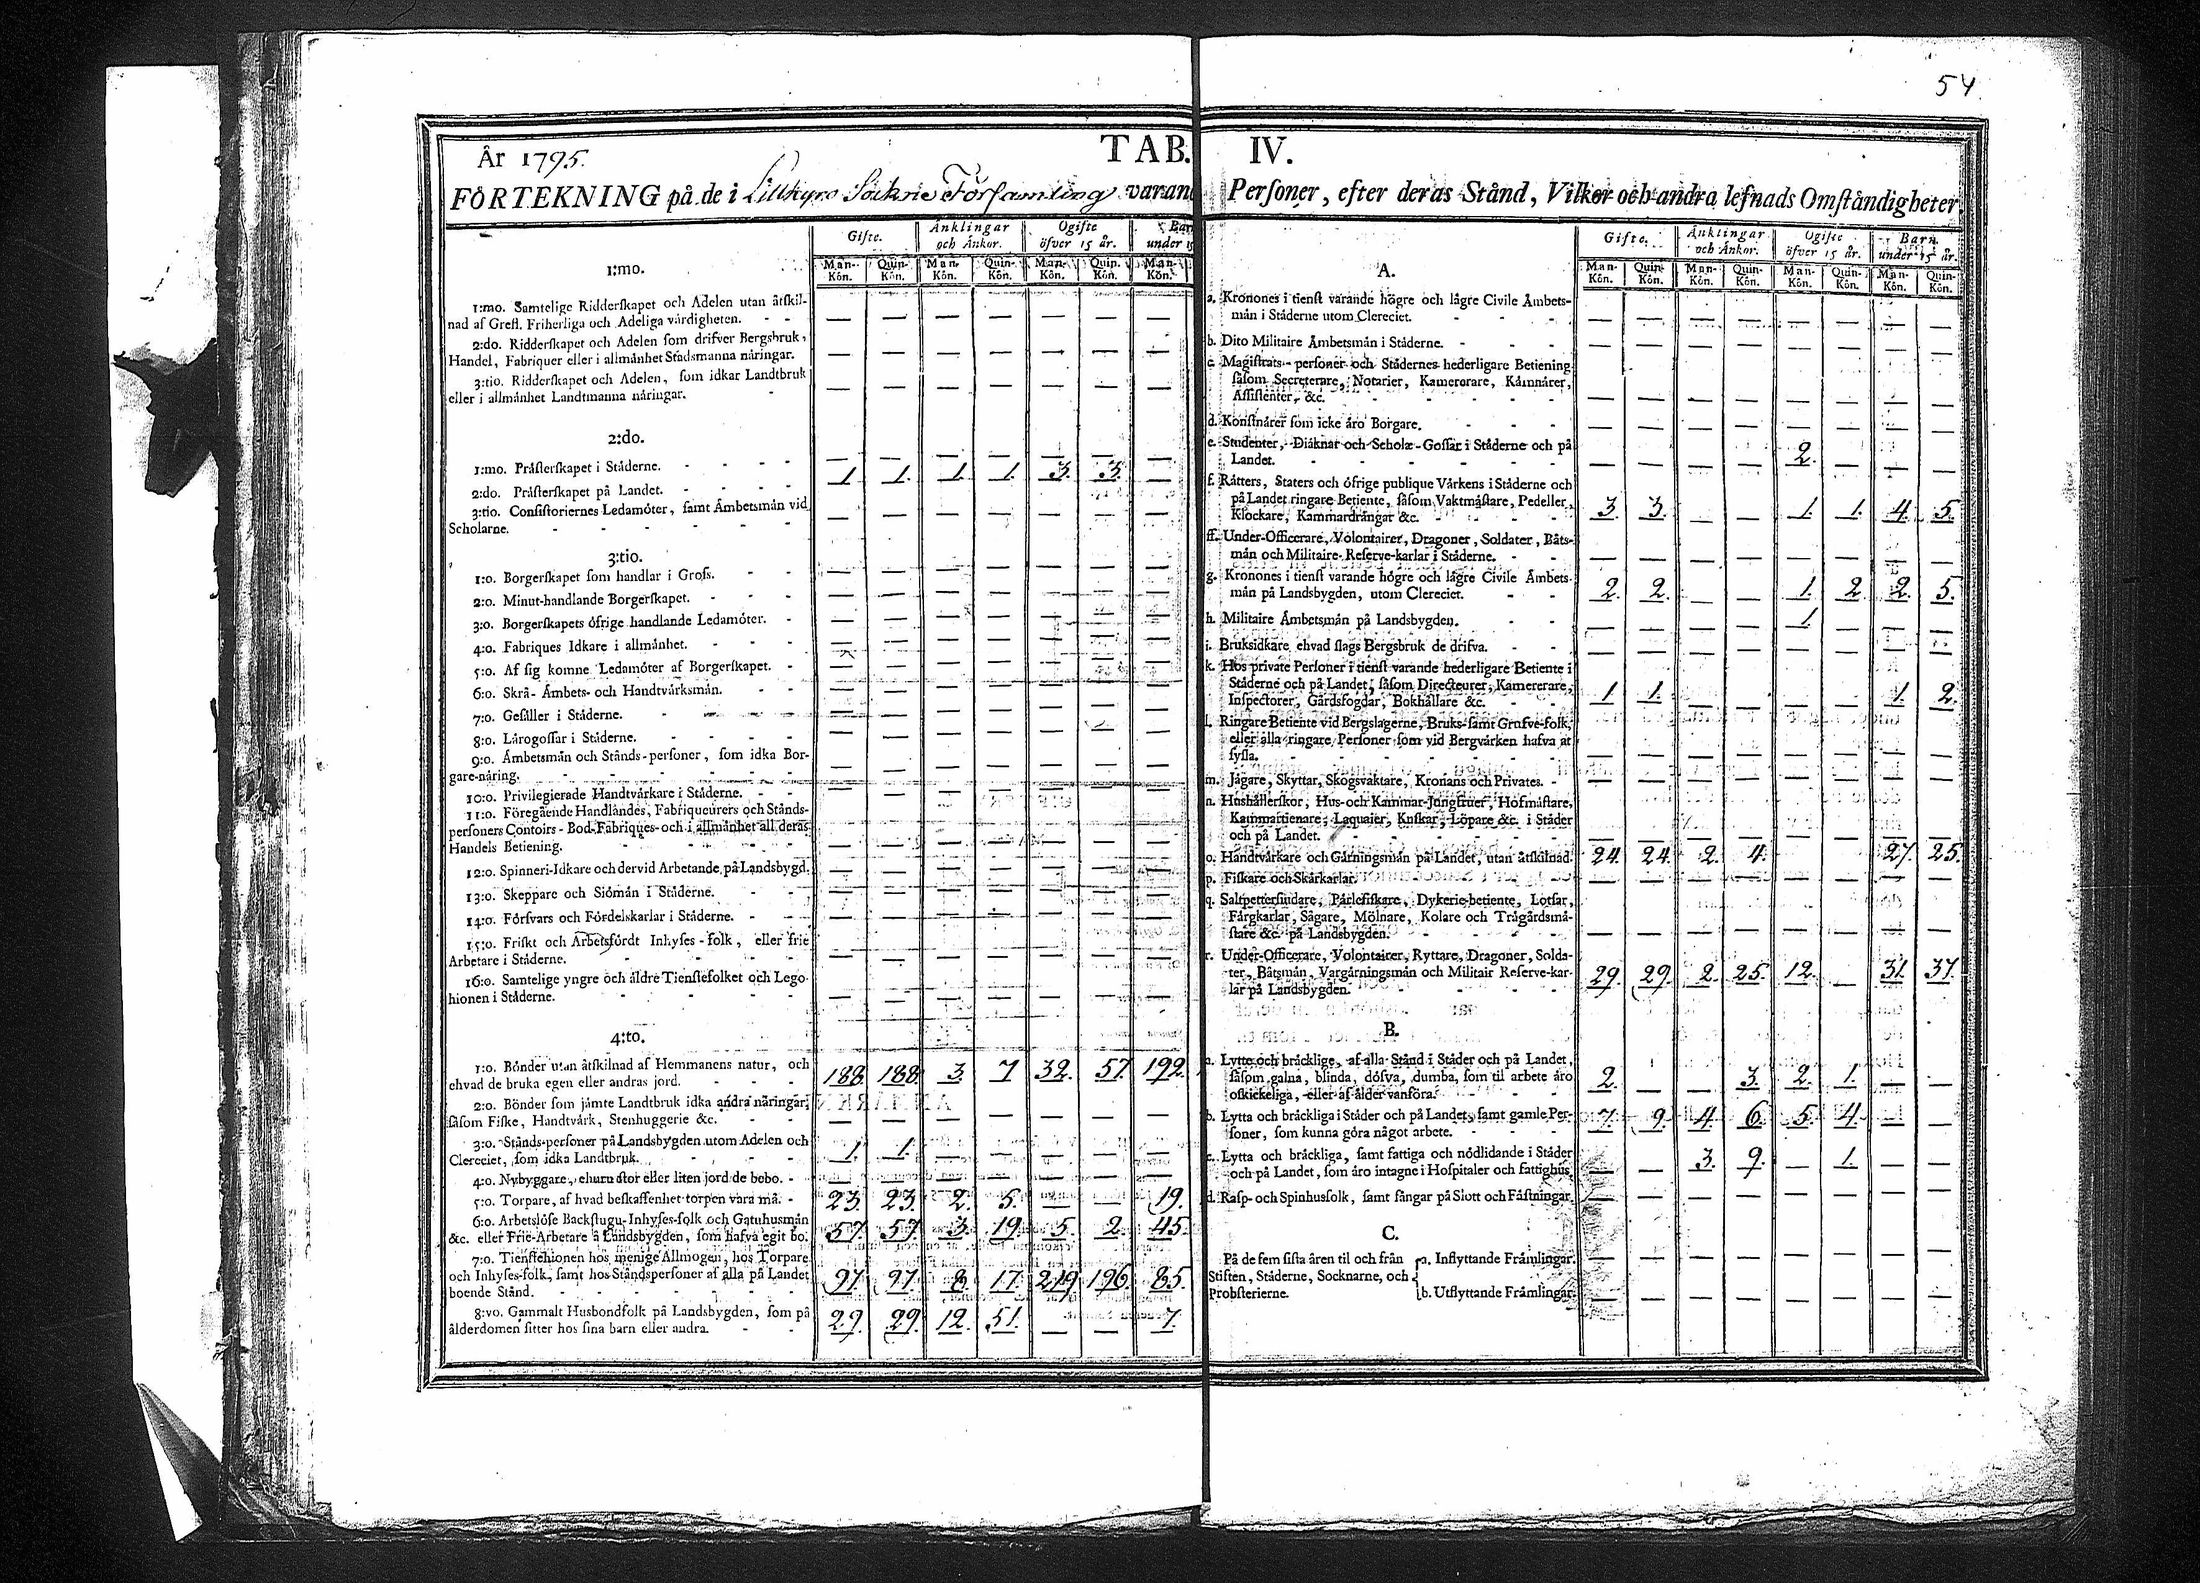 54
År 1795.
TAB. IV.
FÖRTEKNING på de i Lillkyro Sockne Församling varande Personer, efter deras Stånd, Vilkor och andra lefnads Omståndigheter.
Gifte. Änklingar och Ånkor. Ogifte öfver 15 år. Barn under 15
Man-Kön. Quin-Kön. Man-Kön. Quin-Kön. Man-Kön. Quin-Kön. Man-Kön.
1:mo.
1:mo. Samtelige Ridderskapet och Adelen utan åtskil-
nad af Grefl. Friherliga och Adeliga vårdigheten. — — — — — — —
2:do. Ridderskapet och Adelen som drifver Bergsbruk,
Handel, Fabriquer eller i allmånhet Stadsmanna nåringar. — — — — — — —
3:tio. Ridderskapet och Adelen, som idkar Landtbruk
eller i allmånhet Landtmanna nåringar. — — — — — — —
2:do.
1:mo. Pråsterskapet i Ståderne. — — — — — — —
2:do. Pråsterskapet på Landet. 1 1. 1. 1. 3. 3. —
3:tio. Consistoriernes Ledamöter, samt Åmbetsmån vid
Scholarne. — — — — — — —
3:tio.
1:o. Borgerskapet som handlar i Gross. — — — — — — —
2:o. Minut-handlande Borgerskapet. — — — — — — —
3:o. Borgerskapets öfrige handlande Ledamöter. — — — — — — —
4:o. Fabriques Idkare i allmånhet. — — — — — — —
5:o. Af sig komne Ledamöter af Borgerskapet. — — — — — — —
6:o. Skrå- Åmbets- och Handtvårksmån. — — — — — — —
7:o. Gesåller i Ståderne. — — — — — — —
8:o. Lårogossar i Ståderne. — — — — — — —
9:o. Åmbetsmån och Stånds-personer, som idka Bor-
gare-nåring. — — — — — — —
10:o. Privilegierade Handtvårkare i Ståderne. — — — — — — —
11:o. Föregående Handlandes, Fabriqueurers och Stånds-
personers Contoirs - Bod-Fabriques-och i allmånhet all deras
Handels Betiening. — — — — — — —
12:o. Spinneri-Idkare och dervid Arbetande på Landsbygd. — — — — — — —
13:o. Skeppare och Siömån i Ståderne. — — — — — — —
14:o. Försvars och Fördelskarlar i Ståderne. — — — — — — —
15:o. Friskt och Arbetsfördt Inhyses-folk, eller frie
Arbetare i Ståderne. — — — — — — —
16:o. Samtelige yngre och åldre Tienstefolket och Lego-
hionen i Ståderne. — — — — — — —
4:to.
1:o. Bönder utan åtskilnad af Hemmanens natur, och
ehvad de bruka egen eller andras jord. 188 188 3. 7 32. 57. 192.
2:o. Bönder som jåmte Landtbruk idka andra nåringar,
såsom Fiske, Handtvårk, Stenhuggerie &c. — — — — — — —
3:o. Stånds-personer på Landsbygden utom Adelen och
Clereciet, som idka Landtbruk. 1. 1. — — — — —
4:o. Nybyggare, ehuru stor eller liten jord de bebo. — — — — — — —
5:o. Torpare, af hvad beskaffenhet torpen vara må. 23. 23. 2. 5. — — 19.
6:o. Arbetslöse Backstugu-Inhyses-folk och Gatuhusmån
&c. eller Frie-Arbetare å Landsbygden, som hafva egit bo. 57. 57. 3. 19. 5. 2. 45.
7:o. Tienstehionen hos menige Allmogen, hos Torpare
och Inhyses-folk, samt hos Ståndspersoner af alla på Landet
boende Stånd. 97. 97. 8. 17. 219 196 85.
8:vo. Gammalt Husbondfolk på Landsbygden, som på
ålderdomen sitter hos sina barn eller andra. 29. 29. 12. 51. — — 7.
Gifte. Änklingar och Ånkor. Ogifte öfver 15 år. Barn under 15 år.
Man-Kön. Quin-Kön. Man-Kön. Quin-Kön. Man-Kön. Quin-Kön. Man-Kön. Quin-Kön.
A.
a. Kronones i tienst varande högre och lågre Civile Åmbets-
mån i Ståderne utom Clereciet. — — — — — — — —
b. Dito Militaire Åmbetsmån i Ståderne. — — — — — — — —
c. Magistrats-personer och Stådernes hederligare Betiening
såsom Secreterare, Notarier, Kamererare, Kåmnårer,
Assistenter, &c. — — — — — — — —
d. Konstnårer som icke åro Borgare. — — — — — — — —
e. Studenter, Diåknar och Scholæ-Gossar i Ståderne och på
Landet. — — — — 2. — — —
f. Råtters, Staters och öfrige publique Vårkens i Ståderne och
på Landet ringare Betiente, såsom Vaktmåstare, Pedeller,
Klockare, Kammardrångar &c. 3. 3. — — 1. 1. 4. 5.
ff. Under-Officerare, Volontairer, Dragoner, Soldater, Båts-
mån och Militaire-Reserve-karlar i Ståderne. — — — — — — — —
g. Kronones i tienst varande högre och lågre Civile Åmbets-
mån på Landsbygden, utom Clereciet. 2. 2. — — 1. 2. 2. 5.
h. Militaire Åmbetsmån på Landsbygden. — — — — 1. — — —
i. Bruksidkare ehvad slags Bergsbruk de drifva. — — — — — — — —
k. Hos private Personer i tienst varande hederligare Betiente i
Ståderne och på Landet, såsom Directeurer, Kamererare,
Inspectorer, Gårdsfogdar, Bokhållare &c. 1. 1. — — — — 1. 2.
l. Ringare Betiente vid Bergslagerne, Bruks-samt Grufve-folk,
eller alla ringare Personer som vid Bergvårken hafva at
syssla. — — — — — — — —
m. Jågare, Skyttar, Skogsvaktare, Kronans och Privates. — — — — — — — —
n. Hushållerskor, Hus-och Kammar-Jungfruer, Hofmåstare,
Kammartienare, Laquaier, Kuskar, Löpare &c. i Ståder
och på Landet. — — — — — — — —
o. Handtvårkare och Gårningsmån på Landet, utan åtskilnad. 24. 24. 2. 4. — — 27. 25.
p. Fiskare och Skårkarlar. — — — — — — — —
q. Saltpettersiudare, Pårlefiskare, Dykerie-betiente, Lotsar,
Fårgkarlar, Sågare, Mölnare, Kolare och Trågårdsmå-
stare &c. på Landsbygden. — — — — — — — —
r. Under-Officerare, Volontairer, Ryttare, Dragoner, Solda-
ter, Båtsmån, Vargårningsmån och Militair Reserve-kar-
lar på Landsbygden. 29. 29. 2. 25. 12. — 31. 37.
B.
a. Lytte och bråcklige, af alla Stånd i Ståder och på Landet,
såsom galna, blinda, döfva, dumba, som til arbete åro
oskickeliga, eller af ålder vanföra. 2. — — 3. 2. 1. — —
b. Lytta och bråckliga i Ståder och på Landet, samt gamle Per-
soner, som kunna göra något arbete. 7. 9. 4 6. 5. 4. — —
c. Lytta och bråckliga, samt fattiga och nödlidande i Ståder
och på Landet, som åro intagne i Hospitaler och fattighus. — — 3. 9. — 1. — —
d. Rasp- och Spinhusfolk, samt fångar på Slott och Fåstningar. — — — — — — — —
C.
På de fem sista åren til och från
Stiften, Ståderne, Socknarne, och
Probsterierne.
a. Inflyttande Fråmlingar. — — — — — — — —
b. Utflyttande Fråmlingar. — — — — — — — —